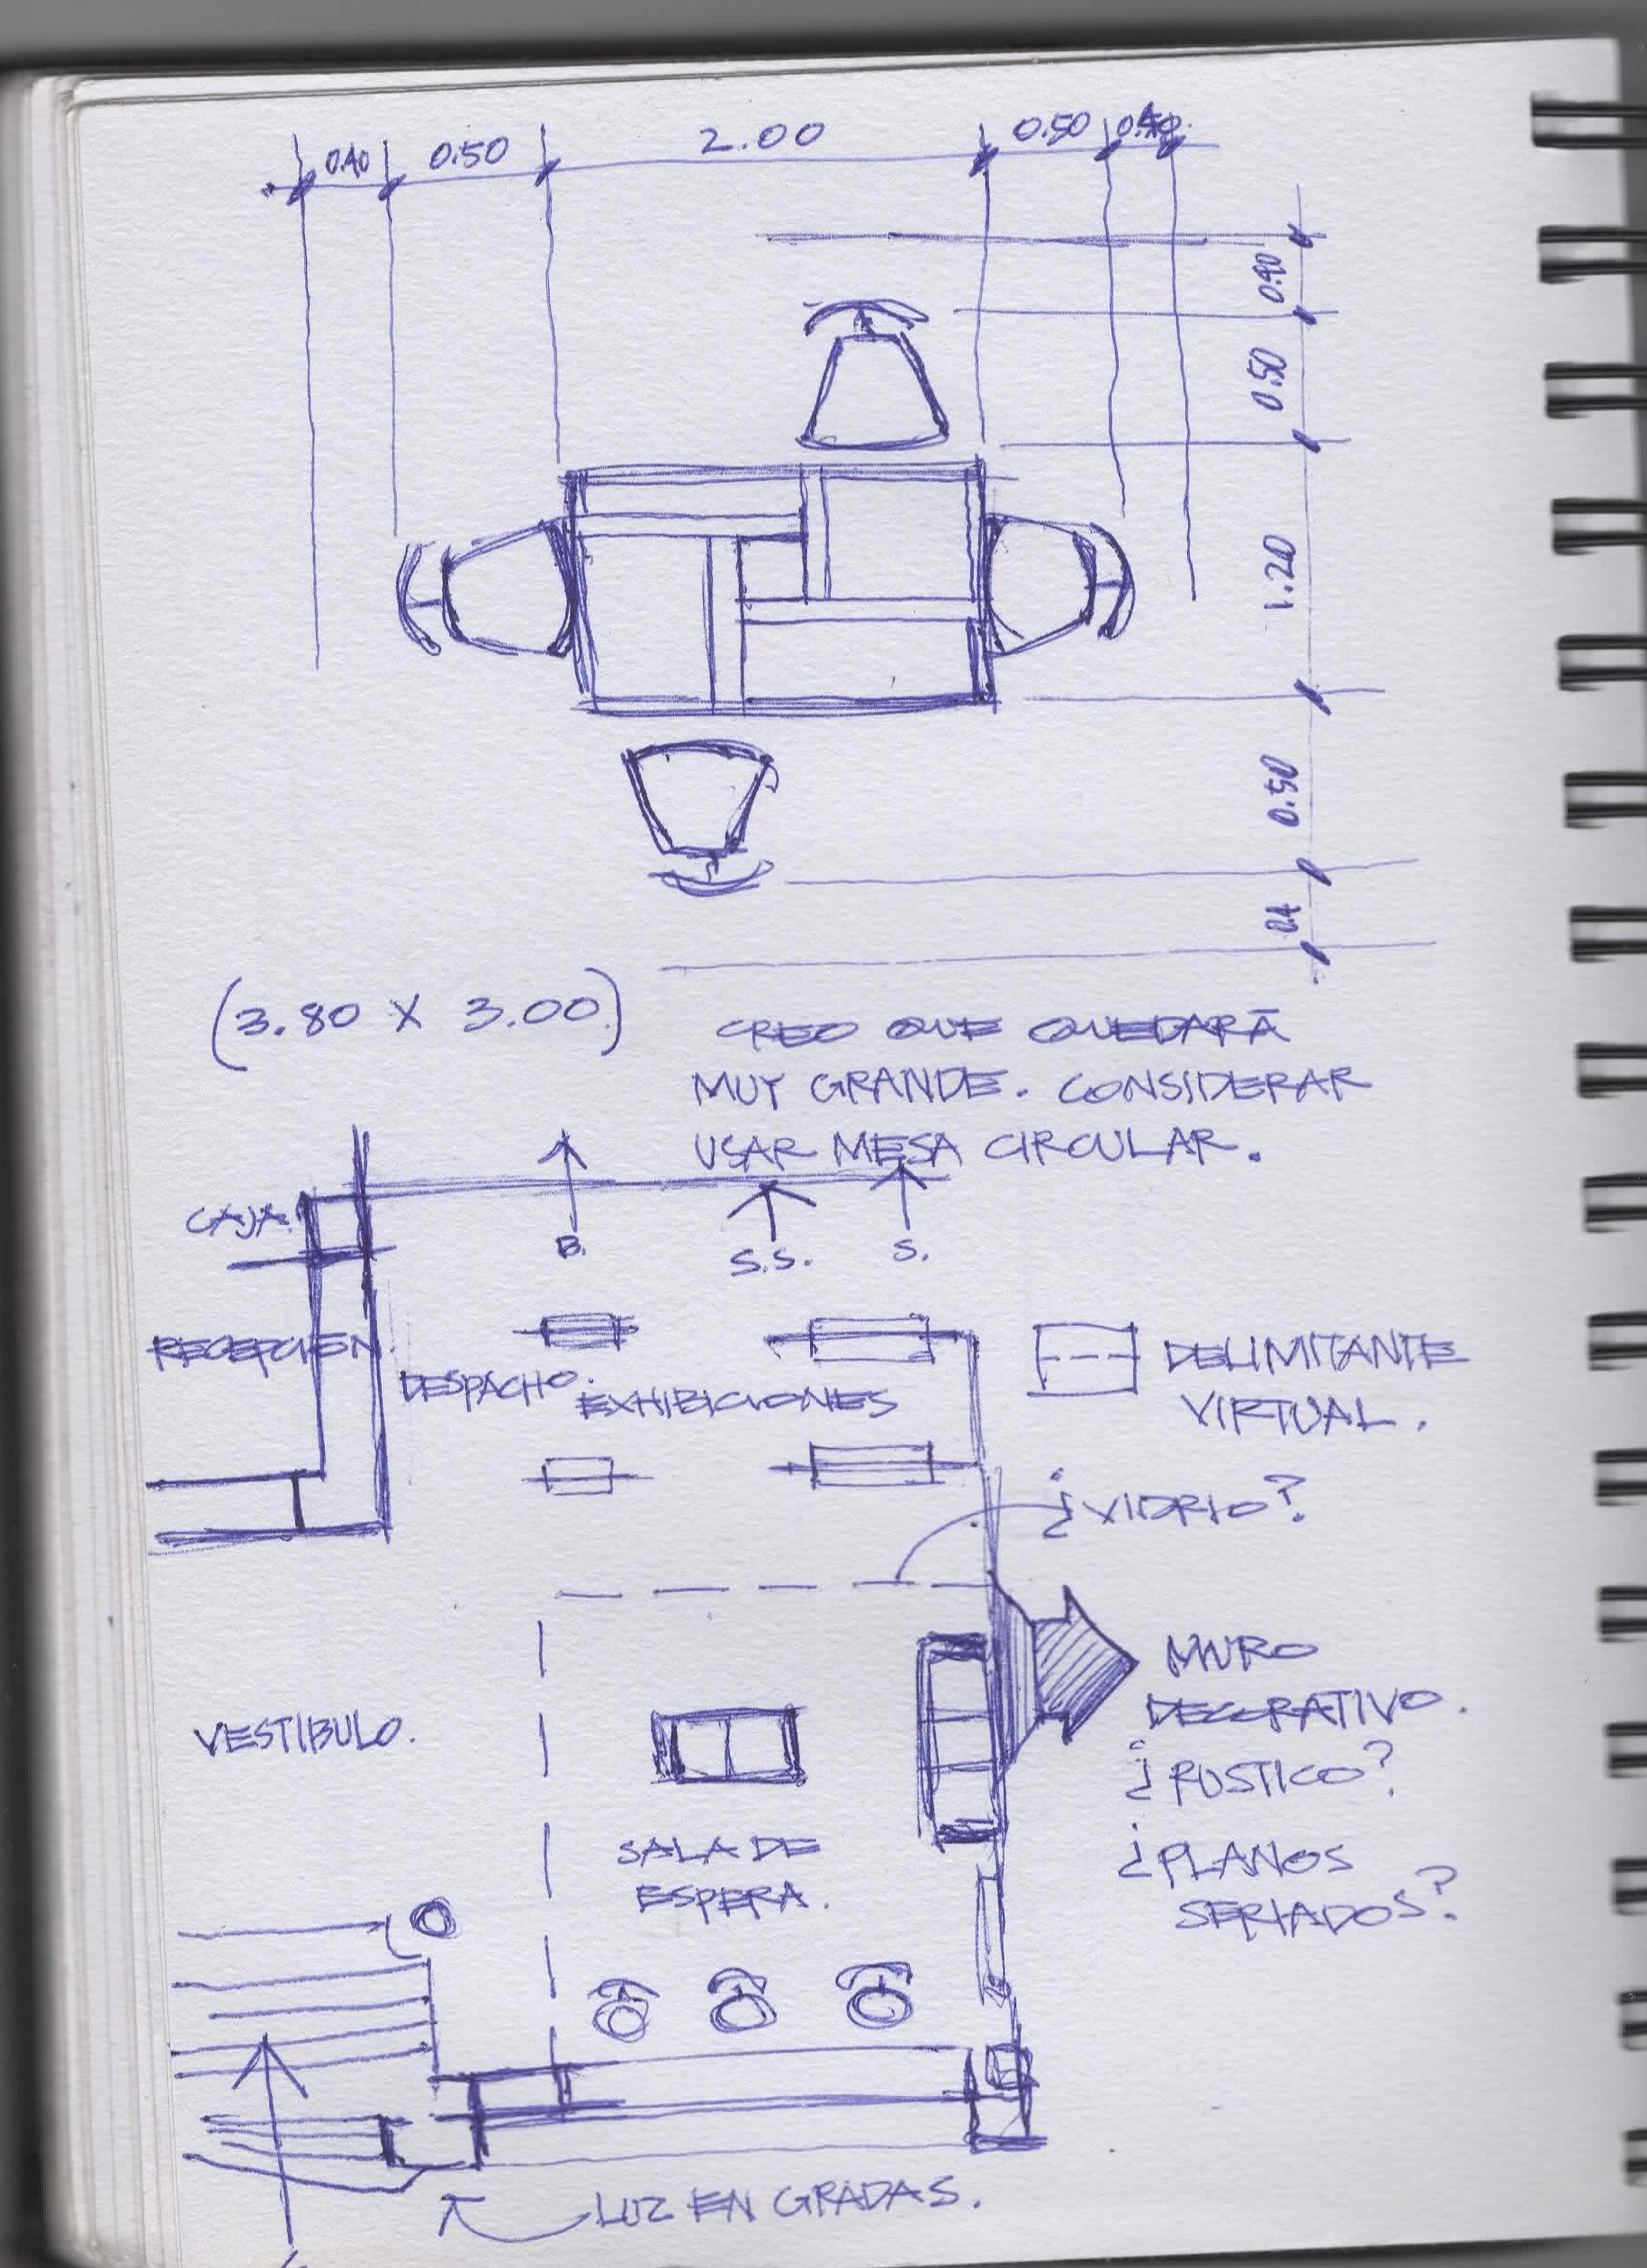 0.40 0.50 2.00 0.50 0.40
0.40
0.50
1.20
0.50
0.4
(3.80 X 3.00)
CREO QUE QUEDARÁ
MUY GRANDE. CONSIDERAR
USAR MESA CIRCULAR.
CAJA.
B. S.S. S.
RECEPCIÓN.
DESPACHO. EXHIBICIONES
DELIMITANTE
VIRTUAL.
¿VIDRIO?
MURO
DECORATIVO.
¿RUSTICO?
¿PLANOS
SERIADOS?
VESTIBULO.
SALA DE
ESPERA.
LUZ EN GRADAS.